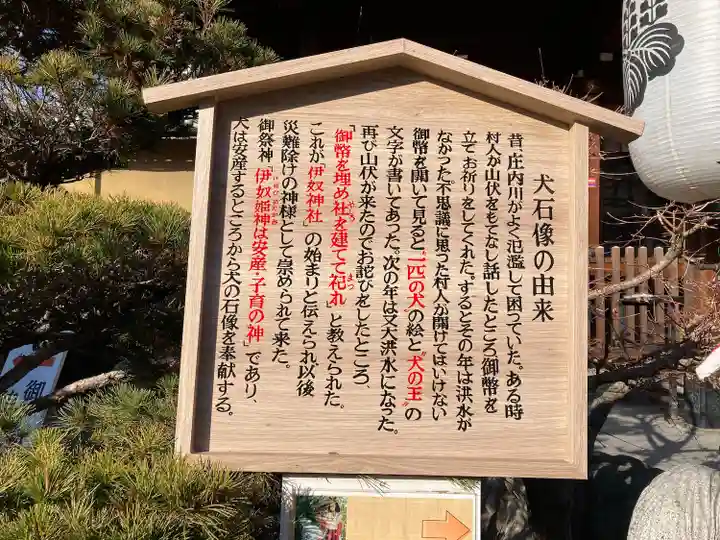 犬石像の由来
昔、庄内川がよく氾濫して困っていた。ある時
村人が山伏をもてなし話したところ御幣を
立てお祈りをしてくれた。するとその年は洪水が
なかった。不思議に思った村人が開けてはいけない
御幣を開いて見ると〝一匹の犬〟の絵と〝犬の王〟の
文字が書いてあった。次の年は又大洪水になった。
再び山伏が来たのでお詫びをしたところ、
「御幣を埋め社を建てて祀れ」と教えられた。
これが「伊奴神社」の始まりと伝えられ以後
災難除けの神様として崇められて来た。
御祭神「伊奴姫神は安産・子育の神」であり、
犬は安産するところから犬の石像を奉献する。
御